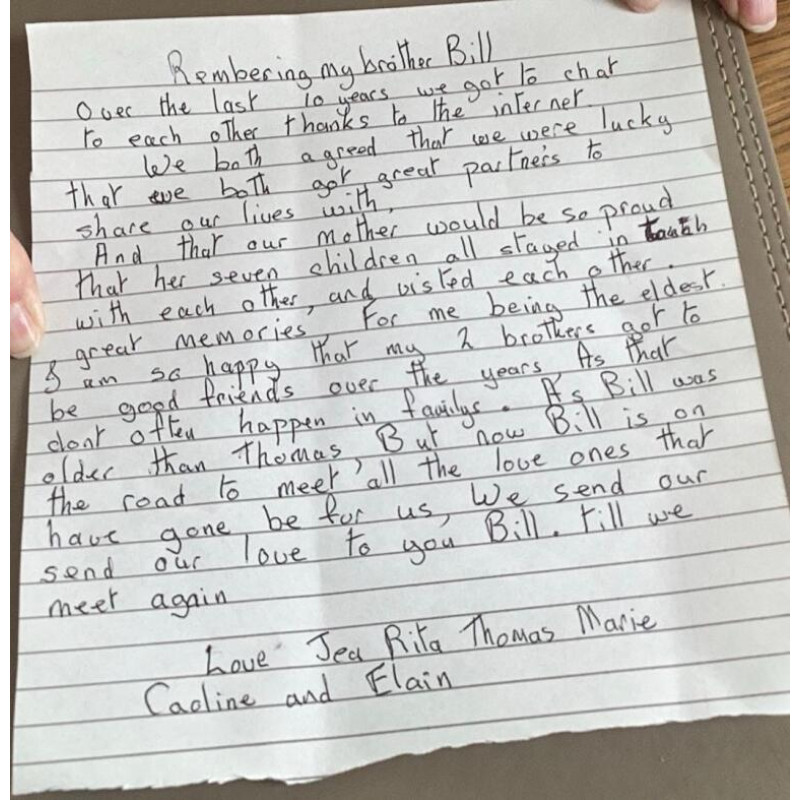 Rembering my brother Bill
Over the last 10 years we got to chat
to each other thanks to the internet.
We both agreed that we were lucky
that we both got great partners to
share our lives with,
And that our mother would be so proud
that her seven children all stayed in
with each other, and visted each other.
great memories, For me being the eldest.
I am so happy that my 2 brothers got to
be good friends over the years, As that
dont often happen in familys. As Bill was
older than Thomas, But now Bill is on
the road to meet all the love ones that
have gone be for us, We send our
send our love to you Bill. till we
meet again
Love Jea Rita Thomas Marie
Caoline and Elain